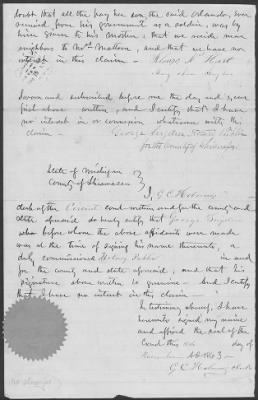 doubt that all the pay her son, the said Orlando, ever
received, from his government as a soldier, was by
him given to his mother; that we reside near
neighbors to Mrs. Mallory, and that we have no
interest in this claim —
Hart
Mary
Sworn and subscribed before me the day and year
first above written, and I certify that I have
no interest in or concern whatsoever with this
claim —
George
for the County of Shiawassee
State of Michigan
County of Shiawassee
I, G. C. Holmes
clerk of the Circuit court within and for the county and
state aforesaid do hereby certify that George
who before whom the above affidavits were made
was at the time of signing his name thereunto, a
duly commissioned Notary Public in and
for the county and state aforesaid; and that his
signature above written is genuine — And I certify
that I have no interest in this claim —
In testimony whereof, I have
hereunto signed my name
and affixed the seal of the
Court this day of
A.D. 1863 —
G. C. Holmes Clerk